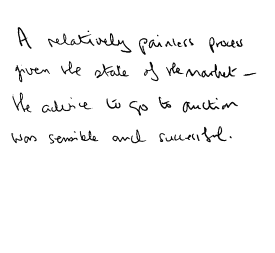 A relatively painless process
given the state of the market –
the advice to go to auction
was sensible and successful.